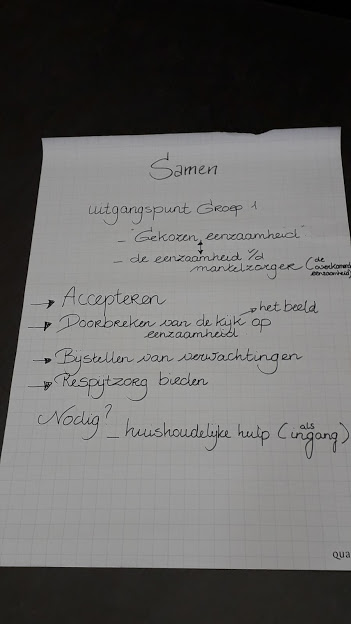 Samen
uitgangspunt Groep 1
- "Gekozen eenzaamheid"
- de eenzaamheid v/d mantelzorger (de overkomen eenzaamheid)
→ Accepteren
→ Doorbreken van de kijk op eenzaamheid → het beeld
→ Bijstellen van verwachtingen
→ Respijtzorg bieden
Nodig?
- huishoudelijke hulp (als ingang)
qua